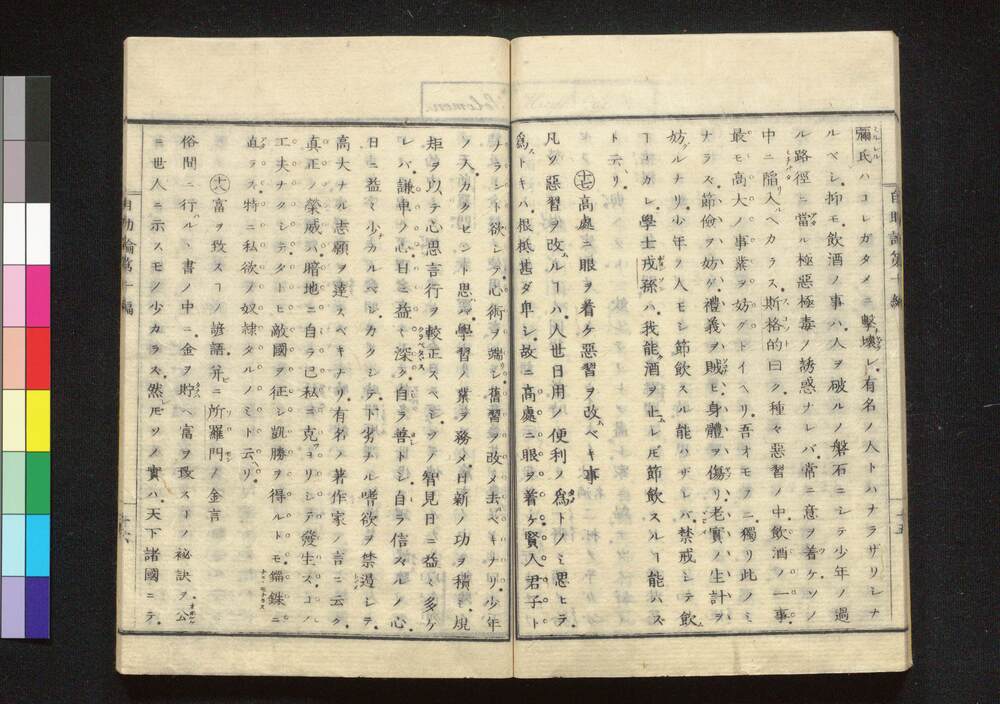 彌氏ハコレガタメニ擊壞レ有名ノ人トハナラザリシナ
ルベシ抑モ飲酒ノ事ハ人ヲ破ルノ磐石ニシテ少年ノ過
ル路徑ニ當ル極惡極毒ノ誘惑ナレバ常ニ意ヲ着ケソノ
中ニ陷入ベカラス斯格的曰ク種々惡習ノ中飲酒ノ一事
最モ高大ノ事業ヲ妨グトイヘリ吾オモフニ獨リ此ノミ
ナラス節儉ヲ妨ゲ禮義ヲ賊ヒ身體ヲ傷リ老實ノ生計ヲ
妨グルナリ少年ノ人モシ節飲スル能ハザレバ禁戒シテ飲
ヿナカレ學士戎孫ハ我能酒ヲ止レ𪜈節飲スルヿ能ハズ
ト云リ
十七高處ニ眼ヲ着ケ惡習ヲ改ベキ事
凡ソ惡習ヲ改ルヿハ人世日用ノ便利ノ爲トノミ思ヒテ
爲ストキハ根柢甚ダ卑シ故ニ高處ニ眼ヲ着ケ賢人君子ト
ナラント欲シテ心術ヲ端シ舊習ヲ改メ去ベキナリ少年
ノ人カクセント思ハ學習ノ業ヲ務メ日新ノ功ヲ積ミ規
矩ヲ以テ心思言行ヲ較正スベシソノ智見日ニ益ミ多ケ
レバ謙卑ノ心日ニ益ミ深ク自ラ善トシ自ラ信スルノ心
日ニ益ミ少カルベシカクシテ下劣ナル嗜欲ヲ禁遏シテ
高大ナル志願ヲ達スベキナリ有名ノ著作家ノ言ニ云ク
真正ノ榮威ハ暗地ニ自ラ己私ニ克ヨリシテ發生スコノ
工夫ナクシテタトヒ敵國ヲ征シ凱勝ヲ得ルトモ錙銖ニ
直ラス特ニ私欲ノ奴隷タルノミト云リ
十八富ヲ致スヿノ諺語并ニ所羅門ノ金言
俗間ニ行ルヽ書ノ中ニ金ヲ貯ヘ富ヲ致ストノ祕訣ヲ公
ニ世人ニ示スモノ少カラス然𪜈ソノ實ハ天下諸國ニテ
自助論第十編
十六
Solomon.